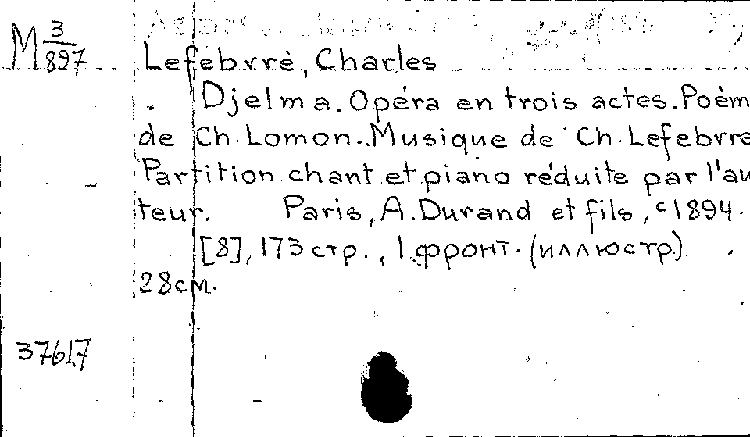 M 3/897
Lefebvre, Charles
Djelma. Opéra en trois actes. Poèm
de Ch. Lomon. Musique de Ch. Lefebvre
Partition chant et piano réduite par l'au
teur. Paris, A. Durand et fils, c1894.
[8], 173 стр., 1 фронт. (иллюстр.)
28 см.
37617